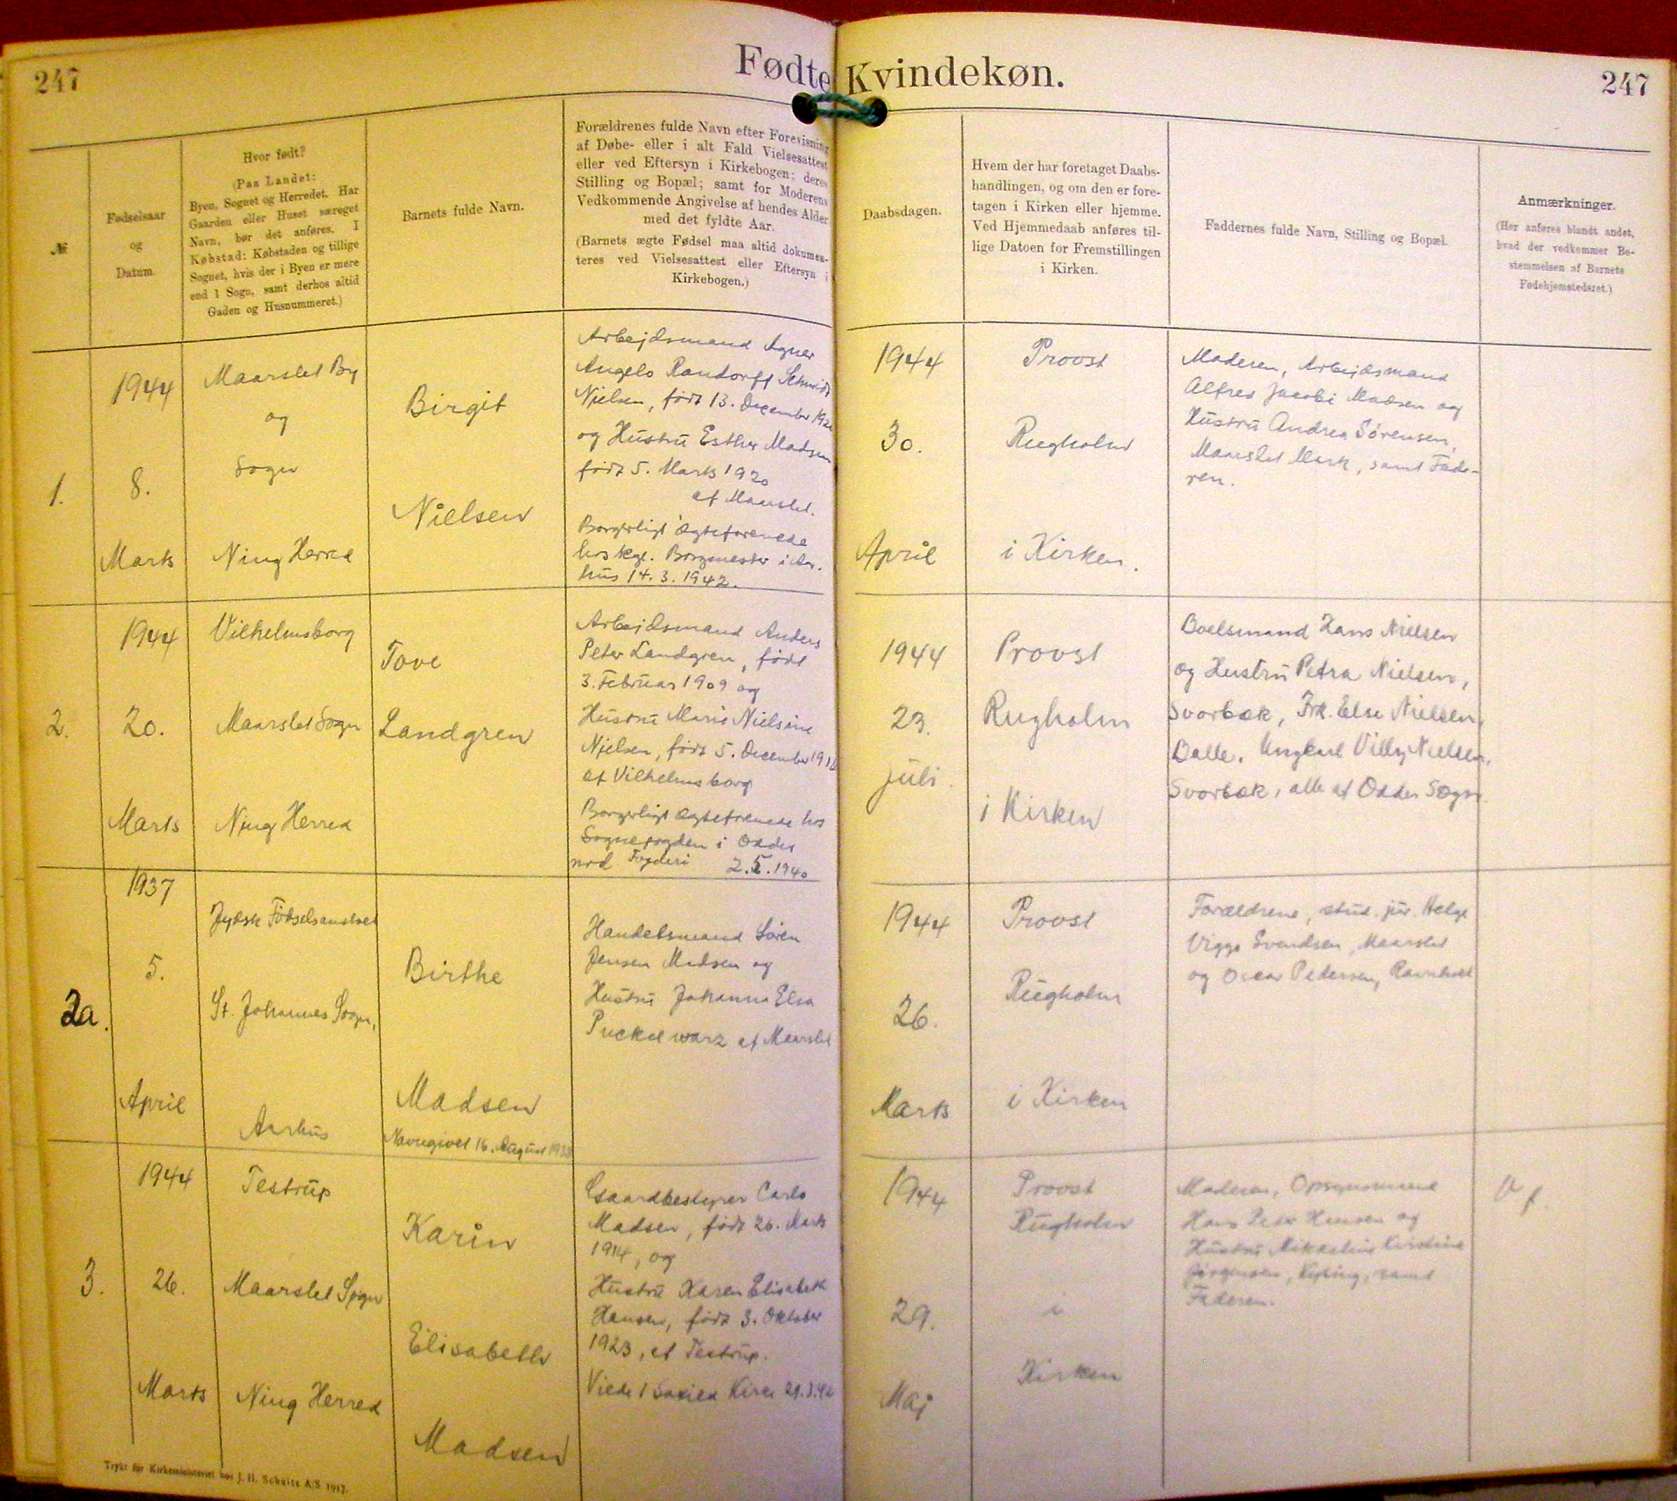 247
Fødte Kvindekøn.
247
№
Fødselsaar
og
Datum.
Hvor født?
(Paa Landet:
Byen, Sognet og Herredet. Har
Gaarden eller Huset særeget
Navn, bør det anføres. I
Købstad: Købstaden og tillige
Sognet, hvis der i Byen er mere
end 1 Sogn, samt derhos altid
Gaden og Husnummeret.)
Barnets fulde Navn.
Forældrenes fulde Navn efter Forevisning
af Døbe- eller i alt Fald Vielsesattest
eller ved Eftersyn i Kirkebogen; deres
Stilling og Bopæl; samt for Moderens
Vedkommende Angivelse af hendes Alder
med det fyldte Aar.
(Barnets ægte Fødsel maa altid dokumen-
teres ved Vielsesattest eller Eftersyn i
Kirkebogen.)
Daabsdagen.
Hvem der har foretaget Daabs-
handlingen, og om den er fore-
tagen i Kirken eller hjemme.
Ved Hjemmedaab anføres til-
lige Datoen for Fremstillingen
i Kirken.
Faddernes fulde Navn, Stilling og Bopæl.
Anmærkninger.
(Her anføres blandt andet,
hvad der vedkommer Be-
stemmelsen af Barnets
Fødehjemstedsret.)
1.
1944
8.
Marts
Maarslet By
og
Sogn
Ning Herred
Birgit
Nielsen
Arbejdsmand Agner
Angelo Randorff Schmidt
Nielsen, født 13. December
og Hustru Esther Madsen
født 5. Marts 1920
af Maarslet.
Borgerligt Ægteforenede
hos kgl. Borgmester i Aar-
hus 14.3.1942.
1944
30.
April
Provst
Rugholm
i Kirken.
Moderen, Arbejdsmand
Alfred Jacobi Madsen og
Hustru Andrea Sørensen,
Maarslet Mark, samt Fade-
ren.
2.
1944
20.
Marts
Vilhelmsborg
Maarslet Sogn
Ning Herred
Tove
Landgren
Arbejdsmand Anders
Peter Landgren, født
3. Februar 1909 og
Hustru Marie Nielsine
Nielsen, født 5. December
af Vilhelmsborg
Borgerligt Ægteforenede hos
Sognefogden i Odder
nord Fogderi 2.5.1940
1944
23.
Juli.
Provst
Rugholm
i Kirken
Boelsmand Hans Nielsen
og Hustru Petra Nielsen,
Svorbæk, Frk. Else Nielsen,
Balle, Ungkarl Villy Nielsen,
Svorbæk, alle af Odder Sogn.
2a.
1937
5.
April
Jydsk Fødselsanstalt
St. Johannes Sogn,
Aarhus
Birthe
Madsen
Navngivet 16. August 1938
Handelsmand Søren
Jensen Madsen og
Hustru Johanna Elsa
Puckelwarz af Maarslet
1944
26.
Marts
Provst
Rugholm
i Kirken
Forældrene, stud. jur. Helge
Viggo Svendsen, Maarslet
og Oscar Pedersen, Ravnholt
3.
1944
26.
Marts
Testrup
Maarslet Sogn
Ning Herred
Karin
Elisabeth
Madsen
Gaardbestyrer Carlo
Madsen, født 26. Marts
1914, og
Hustru Karen Elisabeth
Hansen, født 3. Oktober
1923, af Testrup.
Viede i Saxild Kirke
1944
29.
Maj
Provst
Rugholm
i
Kirken
Moderen, Opsynsmand
Hans Peter Hansen og
Hustru Mikkeline Kirstine
Jørgensen, samt
Faderen.
Trykt for Kirkeministeriet hos J. H. Schultz A/S 1917.